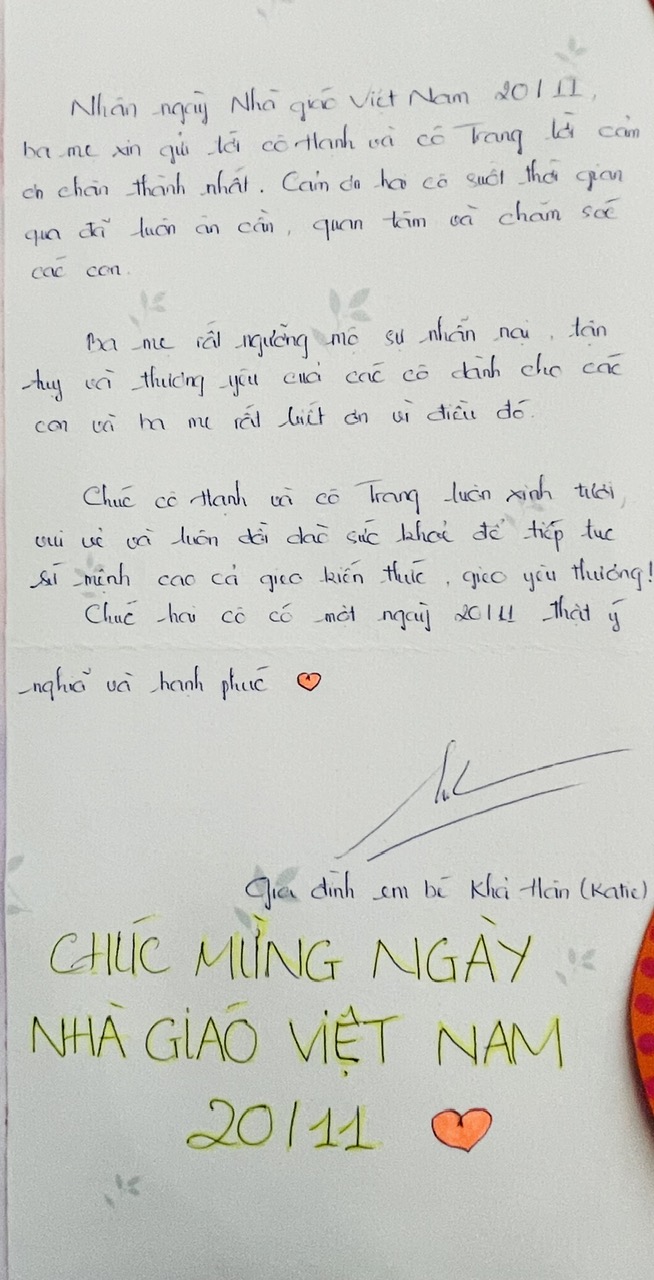 Nhân ngày Nhà giáo Việt Nam 20/11,
ba mẹ xin gửi tới cô Hạnh và cô Trang lời cảm
ơn chân thành nhất. Cảm ơn hai cô suốt thời gian
qua đã luôn ân cần, quan tâm và chăm sóc
các con.
Ba mẹ rất ngưỡng mộ sự nhẫn nại, tận
tuỵ và thương yêu của các cô dành cho các
con và ba mẹ rất biết ơn vì điều đó.
Chúc cô Hạnh và cô Trang luôn xinh tươi,
vui vẻ và luôn dồi dào sức khoẻ để tiếp tục
sứ mệnh cao cả gieo kiến thức, gieo yêu thương!
Chúc hai cô có một ngày 20/11 thật ý
nghĩa và hạnh phúc
Gia đình em bé Khả Hân (Katie)
CHÚC MỪNG NGÀY
NHÀ GIÁO VIỆT NAM
20/11